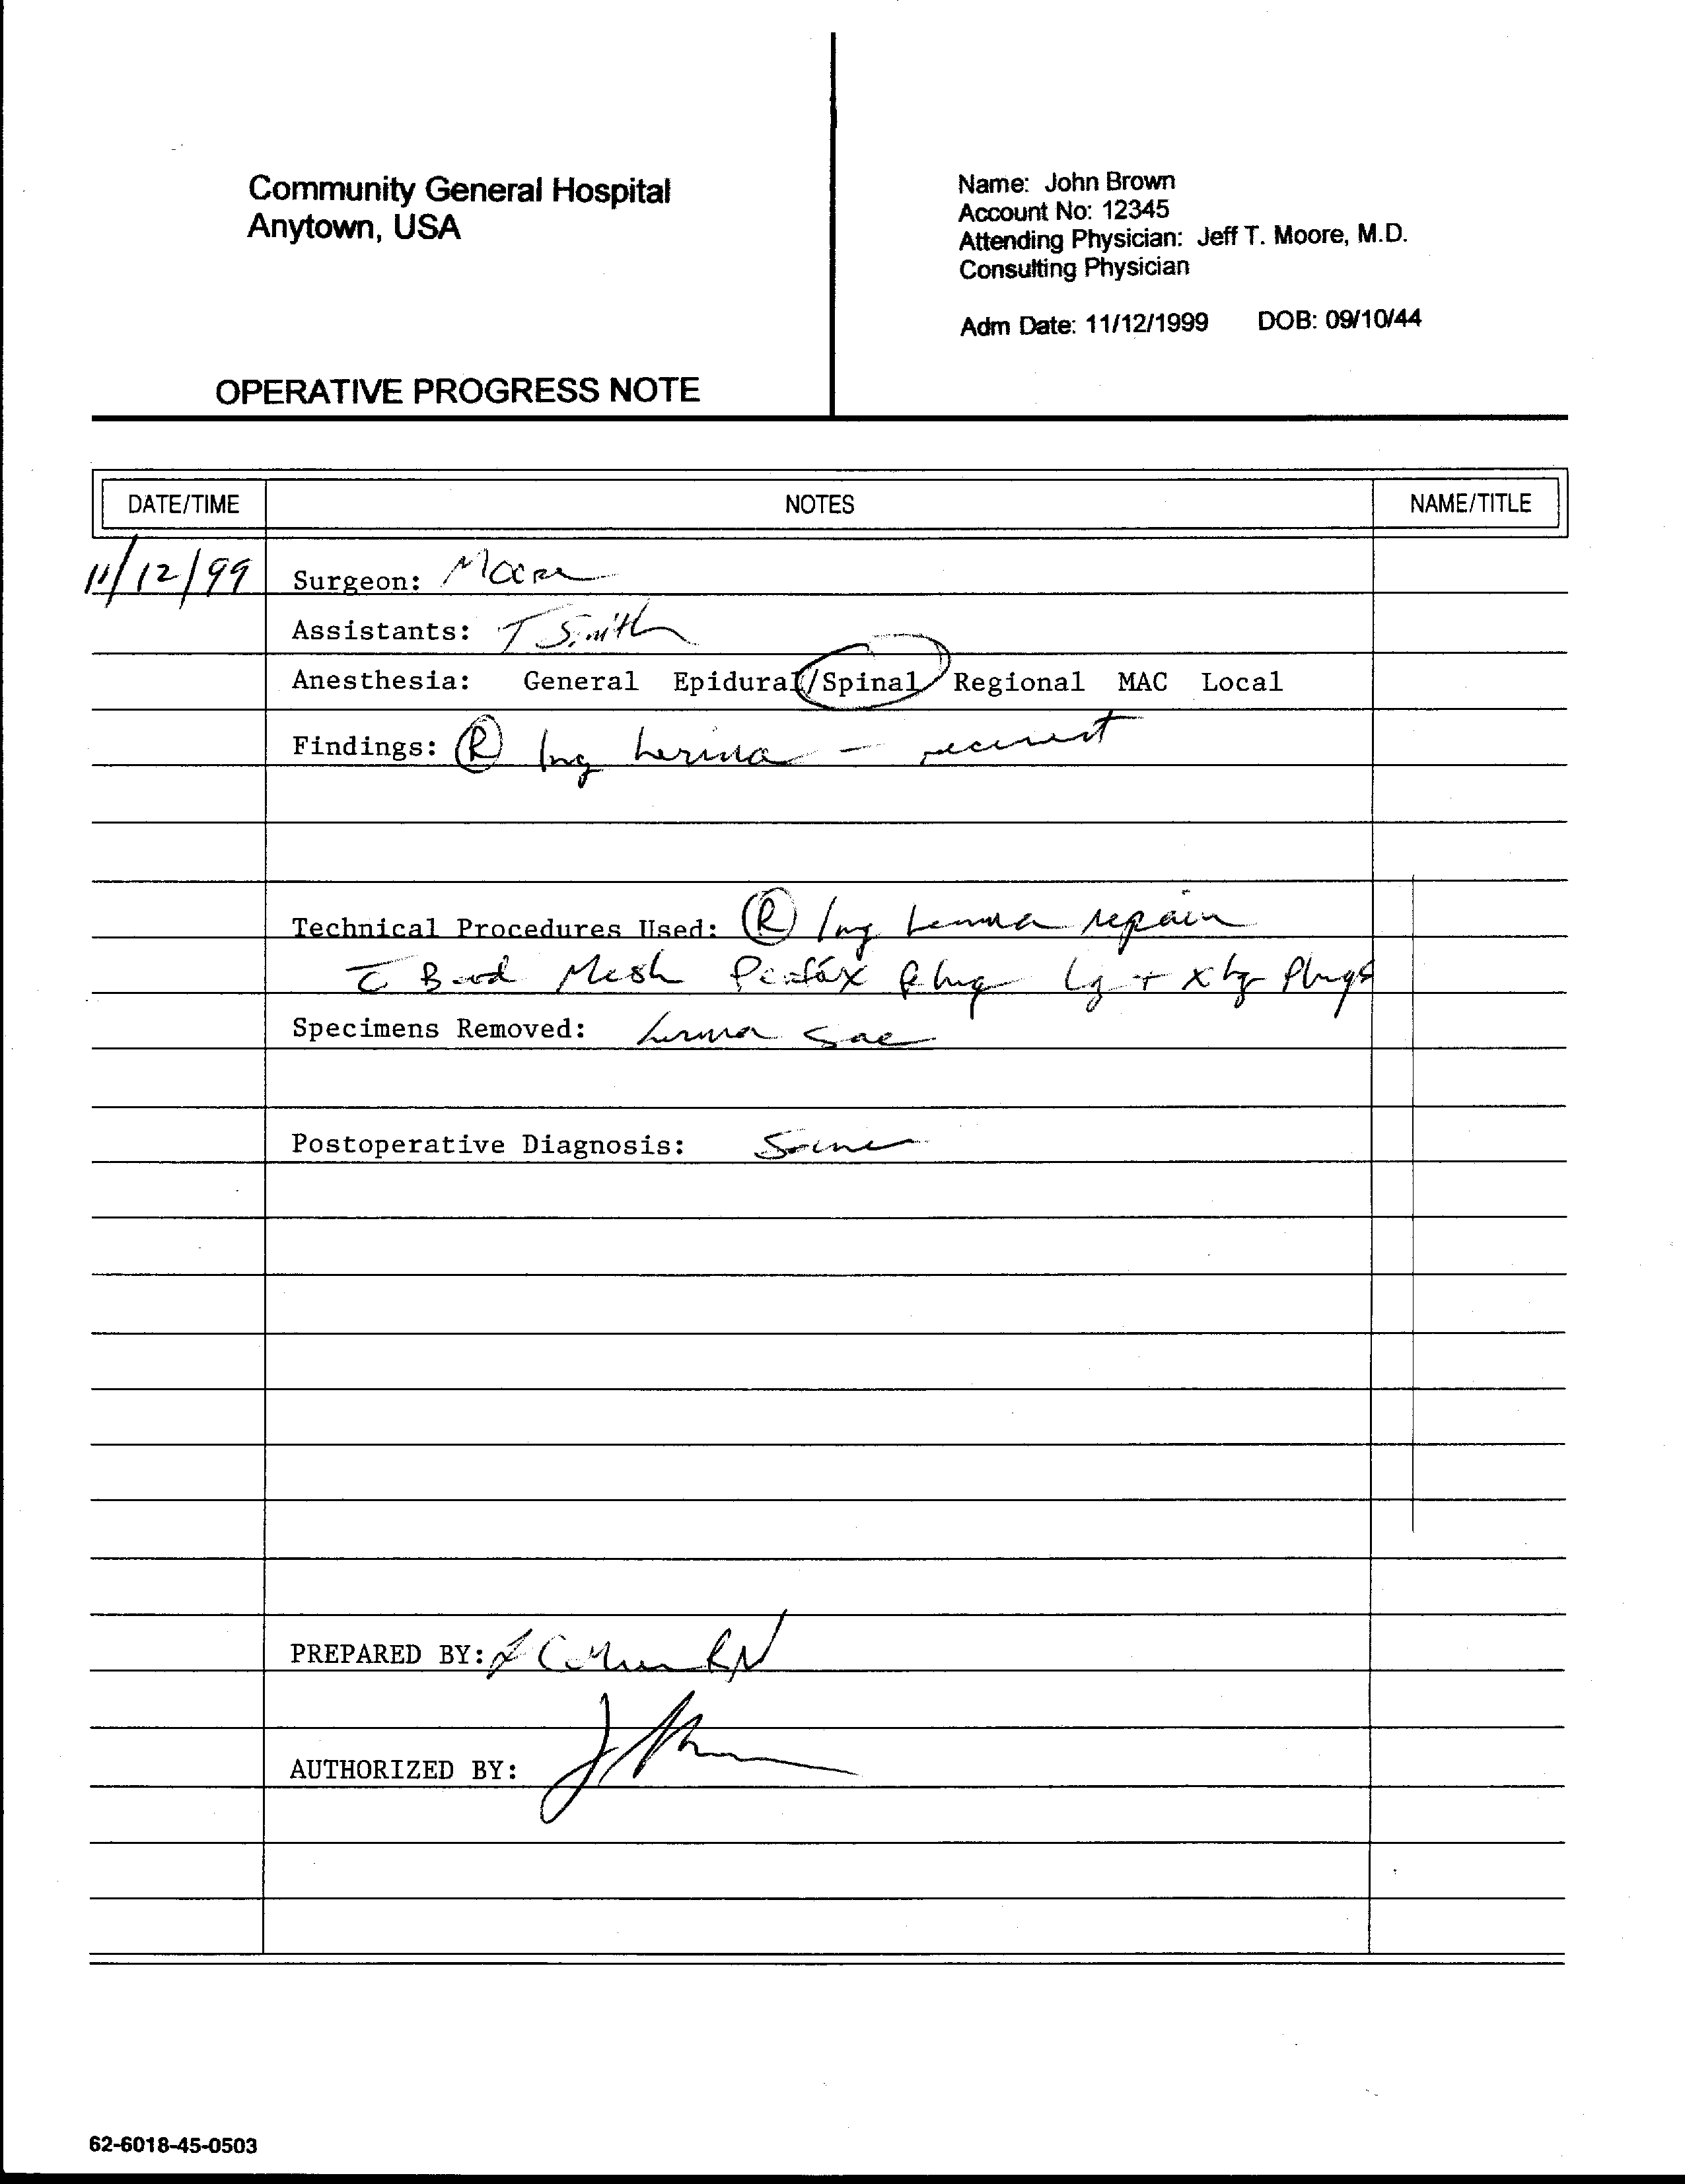 Community General Hospital
Anytown, USA
OPERATIVE PROGRESS NOTE
Name: John Brown
Account No: 12345
Attending Physician: Jeff T. Moore, M.D.
Consulting Physician
Adm Date: 11/12/1999 DOB: 09/10/44
DATE/TIME NOTES NAME/TITLE
11/12/99 Surgeon: Moore
Assistants: T Smith
Anesthesia: General Epidural/Spinal Regional MAC Local
Findings: R Ing hernia - recurrent
Technical Procedures Used: R Ing hernia repair
c̄ Bard Mesh Perfix Plug Lg + x lg Plugs
Specimens Removed: hernia sac
Postoperative Diagnosis: Same
PREPARED BY: RN
AUTHORIZED BY:
62-6018-45-0503